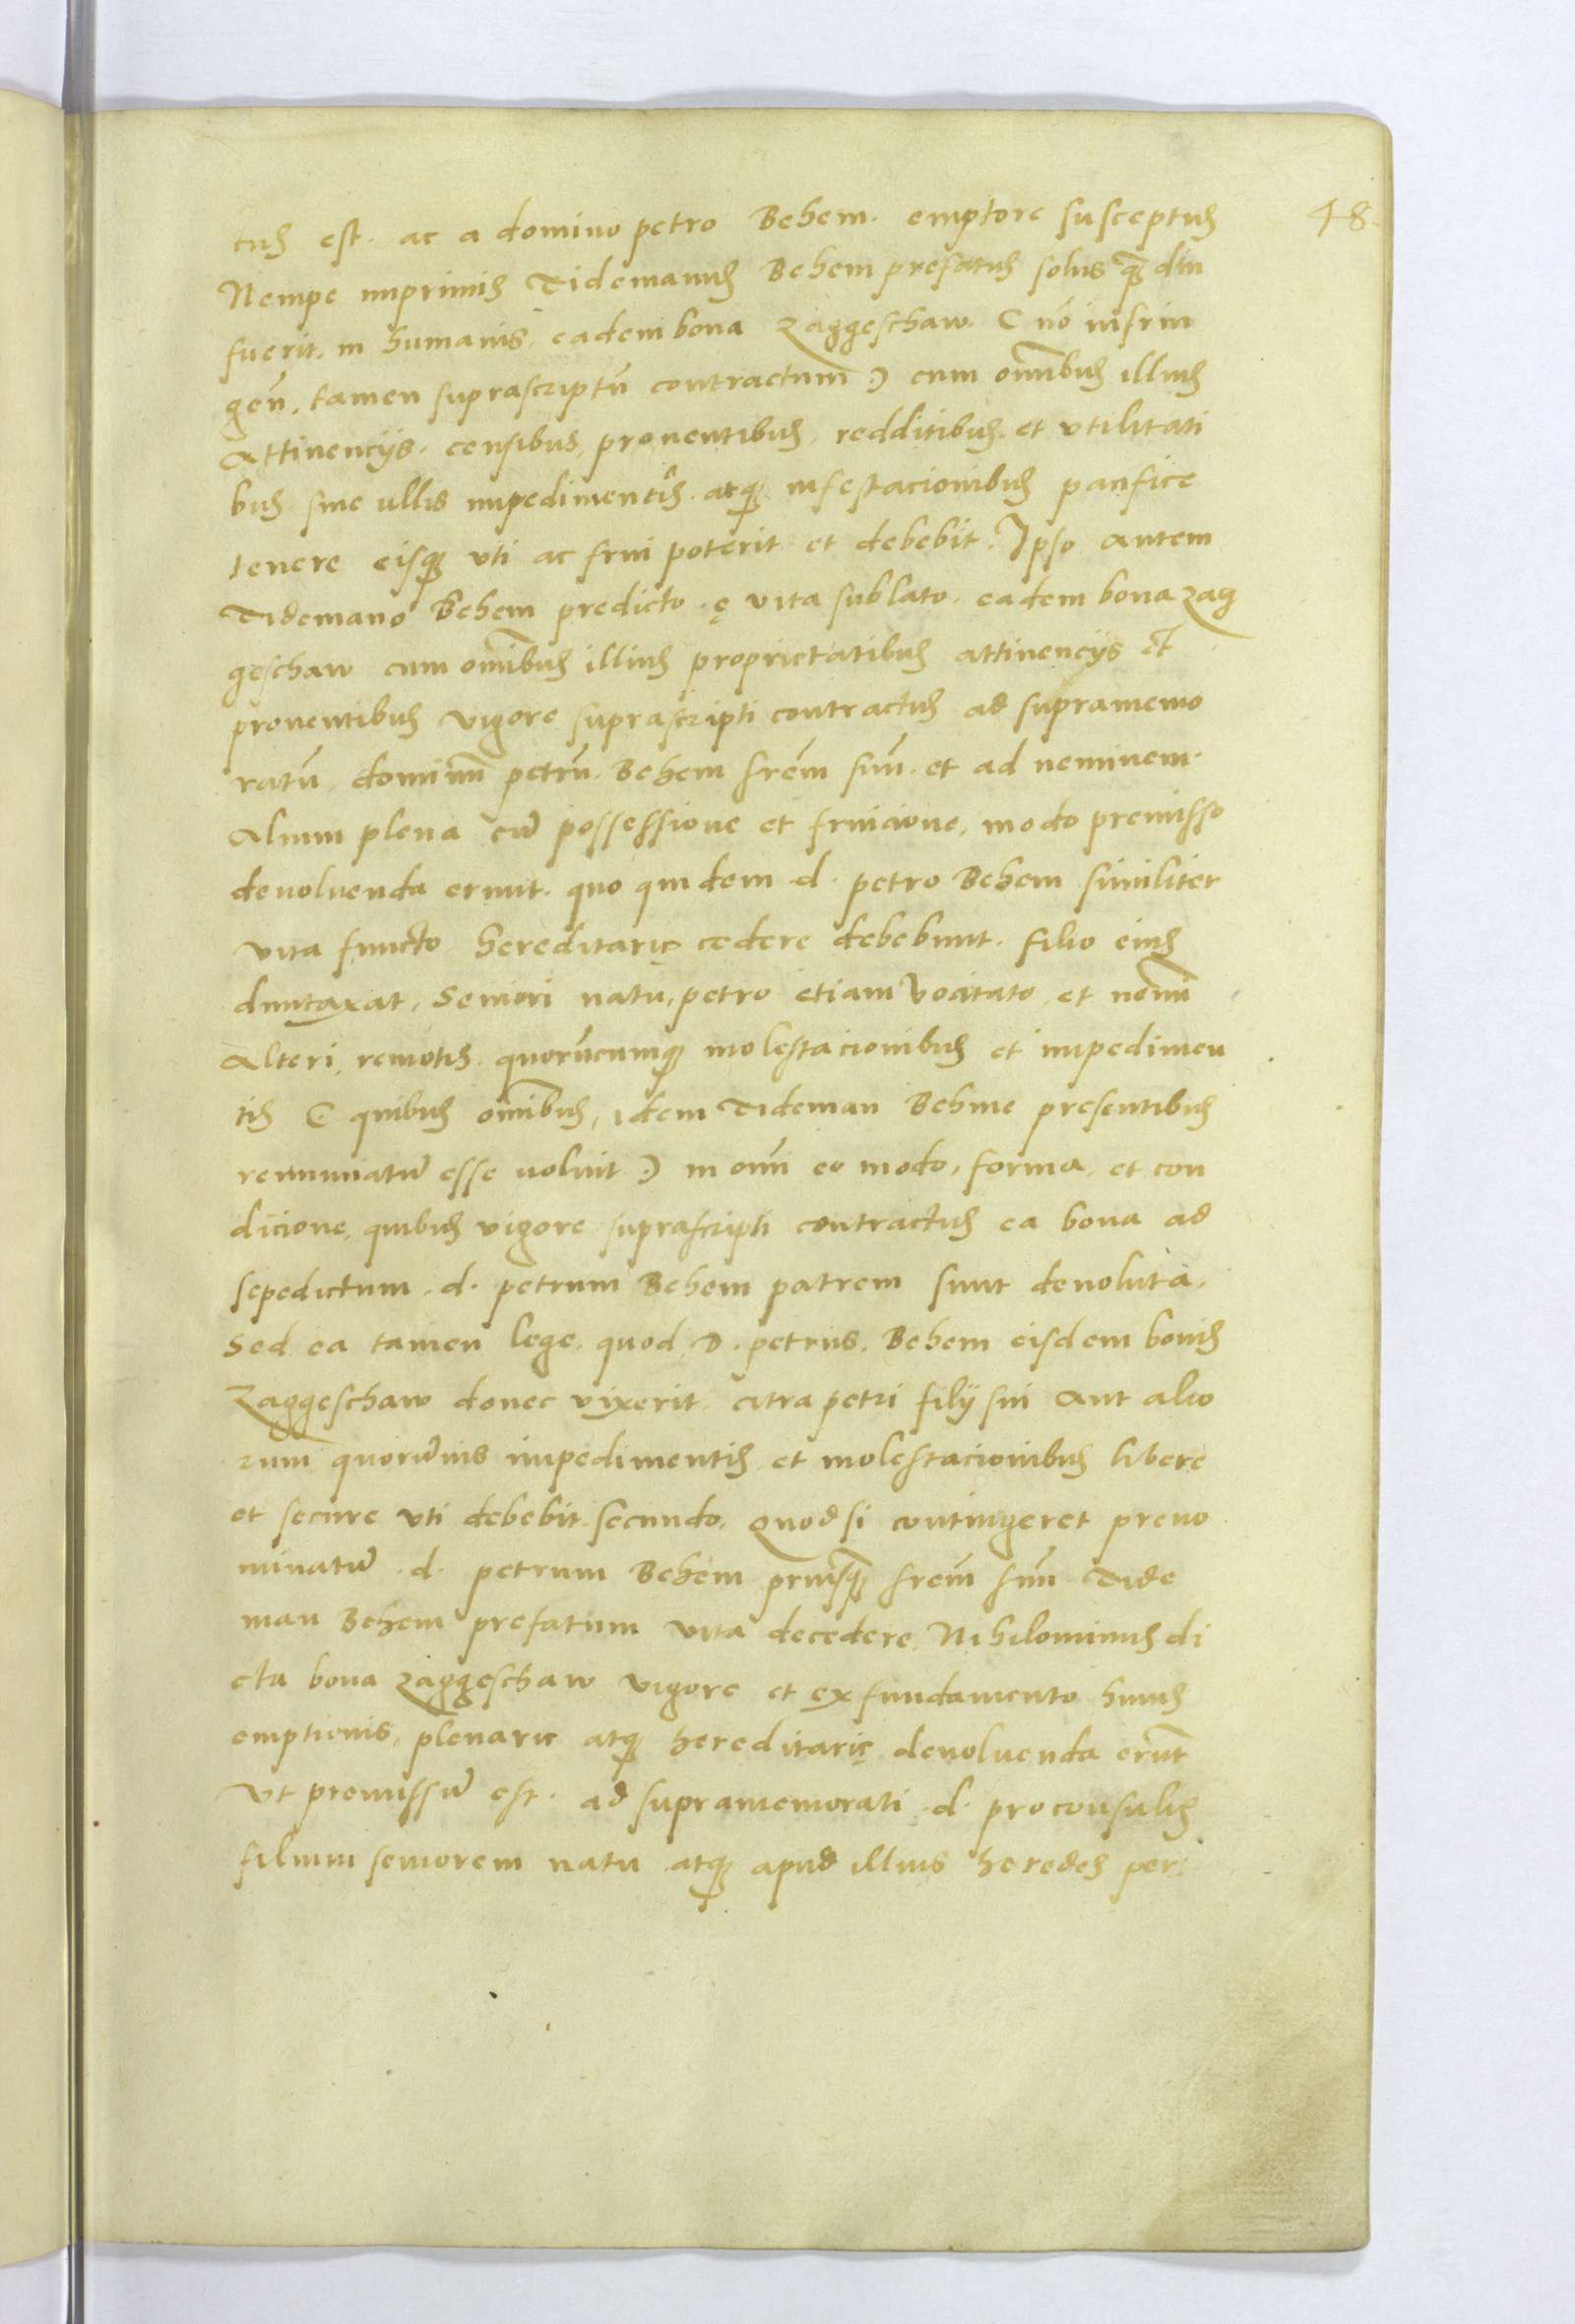 48.
tus est. ac a domino petro Behem. emptore susceptus
Nempe imprimis Tidemanus Behem prefatus solus qz diu
fuerit. in humanis. eadem bona Zaggeschaw. ( nō infrin
gen̄. tamen suprascriptū contractum ) cum omībus illius
Attinencijs. censibus, prouentibus, redditibus. et vtilitati
bus sine ullis impedimentis. atqz infestacionibus panfice
tenere eisqz vti ac frui poterit et debebit. Ipso autem
Tidemano Behem predicto. ę vita sublato. eadem bona zag
geschaw cum omībus illius proprietatibus attinencijs et
prouentibus vigore suprascripti contractus ad supramemo
ratū. dominū petrū. Behem frēm suū. et ad neminem.
Alium plena cū possessione et fruicione, modo premisso
deuoluenda erunt. quo quidem d. petro Behem similiter
vita functo hereditarię cedere debebunt. filio eius
duntaxat, Seniori natu, petro etiam vocitato et nēmī
Alteri, remotis. quorūcumqz molestacionibus et impedimen
tis ( quibus omībus, idem Tideman Behme presentibus
renunciatū esse uoluit ) in omī eo modo, forma, et con
dicione, quibus vigore suprascripti contractus ea bona ad
sepedictum. d. petrum Behem patrem sunt deuoluta.
Sed ea tamen lege. quod D. petrus. Behem eisdem bonis
Zaggeschaw donec vixerit. citra petri filij sui Aut alio
rum quorūuis impedimentis et molestacionibus libere
et secure vti debebit. secundo. Quod si contingeret preno
minatū d. petrum Behem priusqz frēm suū Tide
man Behem prefatum vita decedere. Nihilominus di
cta bona Zaggeschaw vigore et ex fundamento huius
emptionis, plenarie atqz hereditarię deuoluenda erūt
Vt premissū est. ad supramemorati d. proconsulis
filium seniorem natu atqz apud illius heredes per